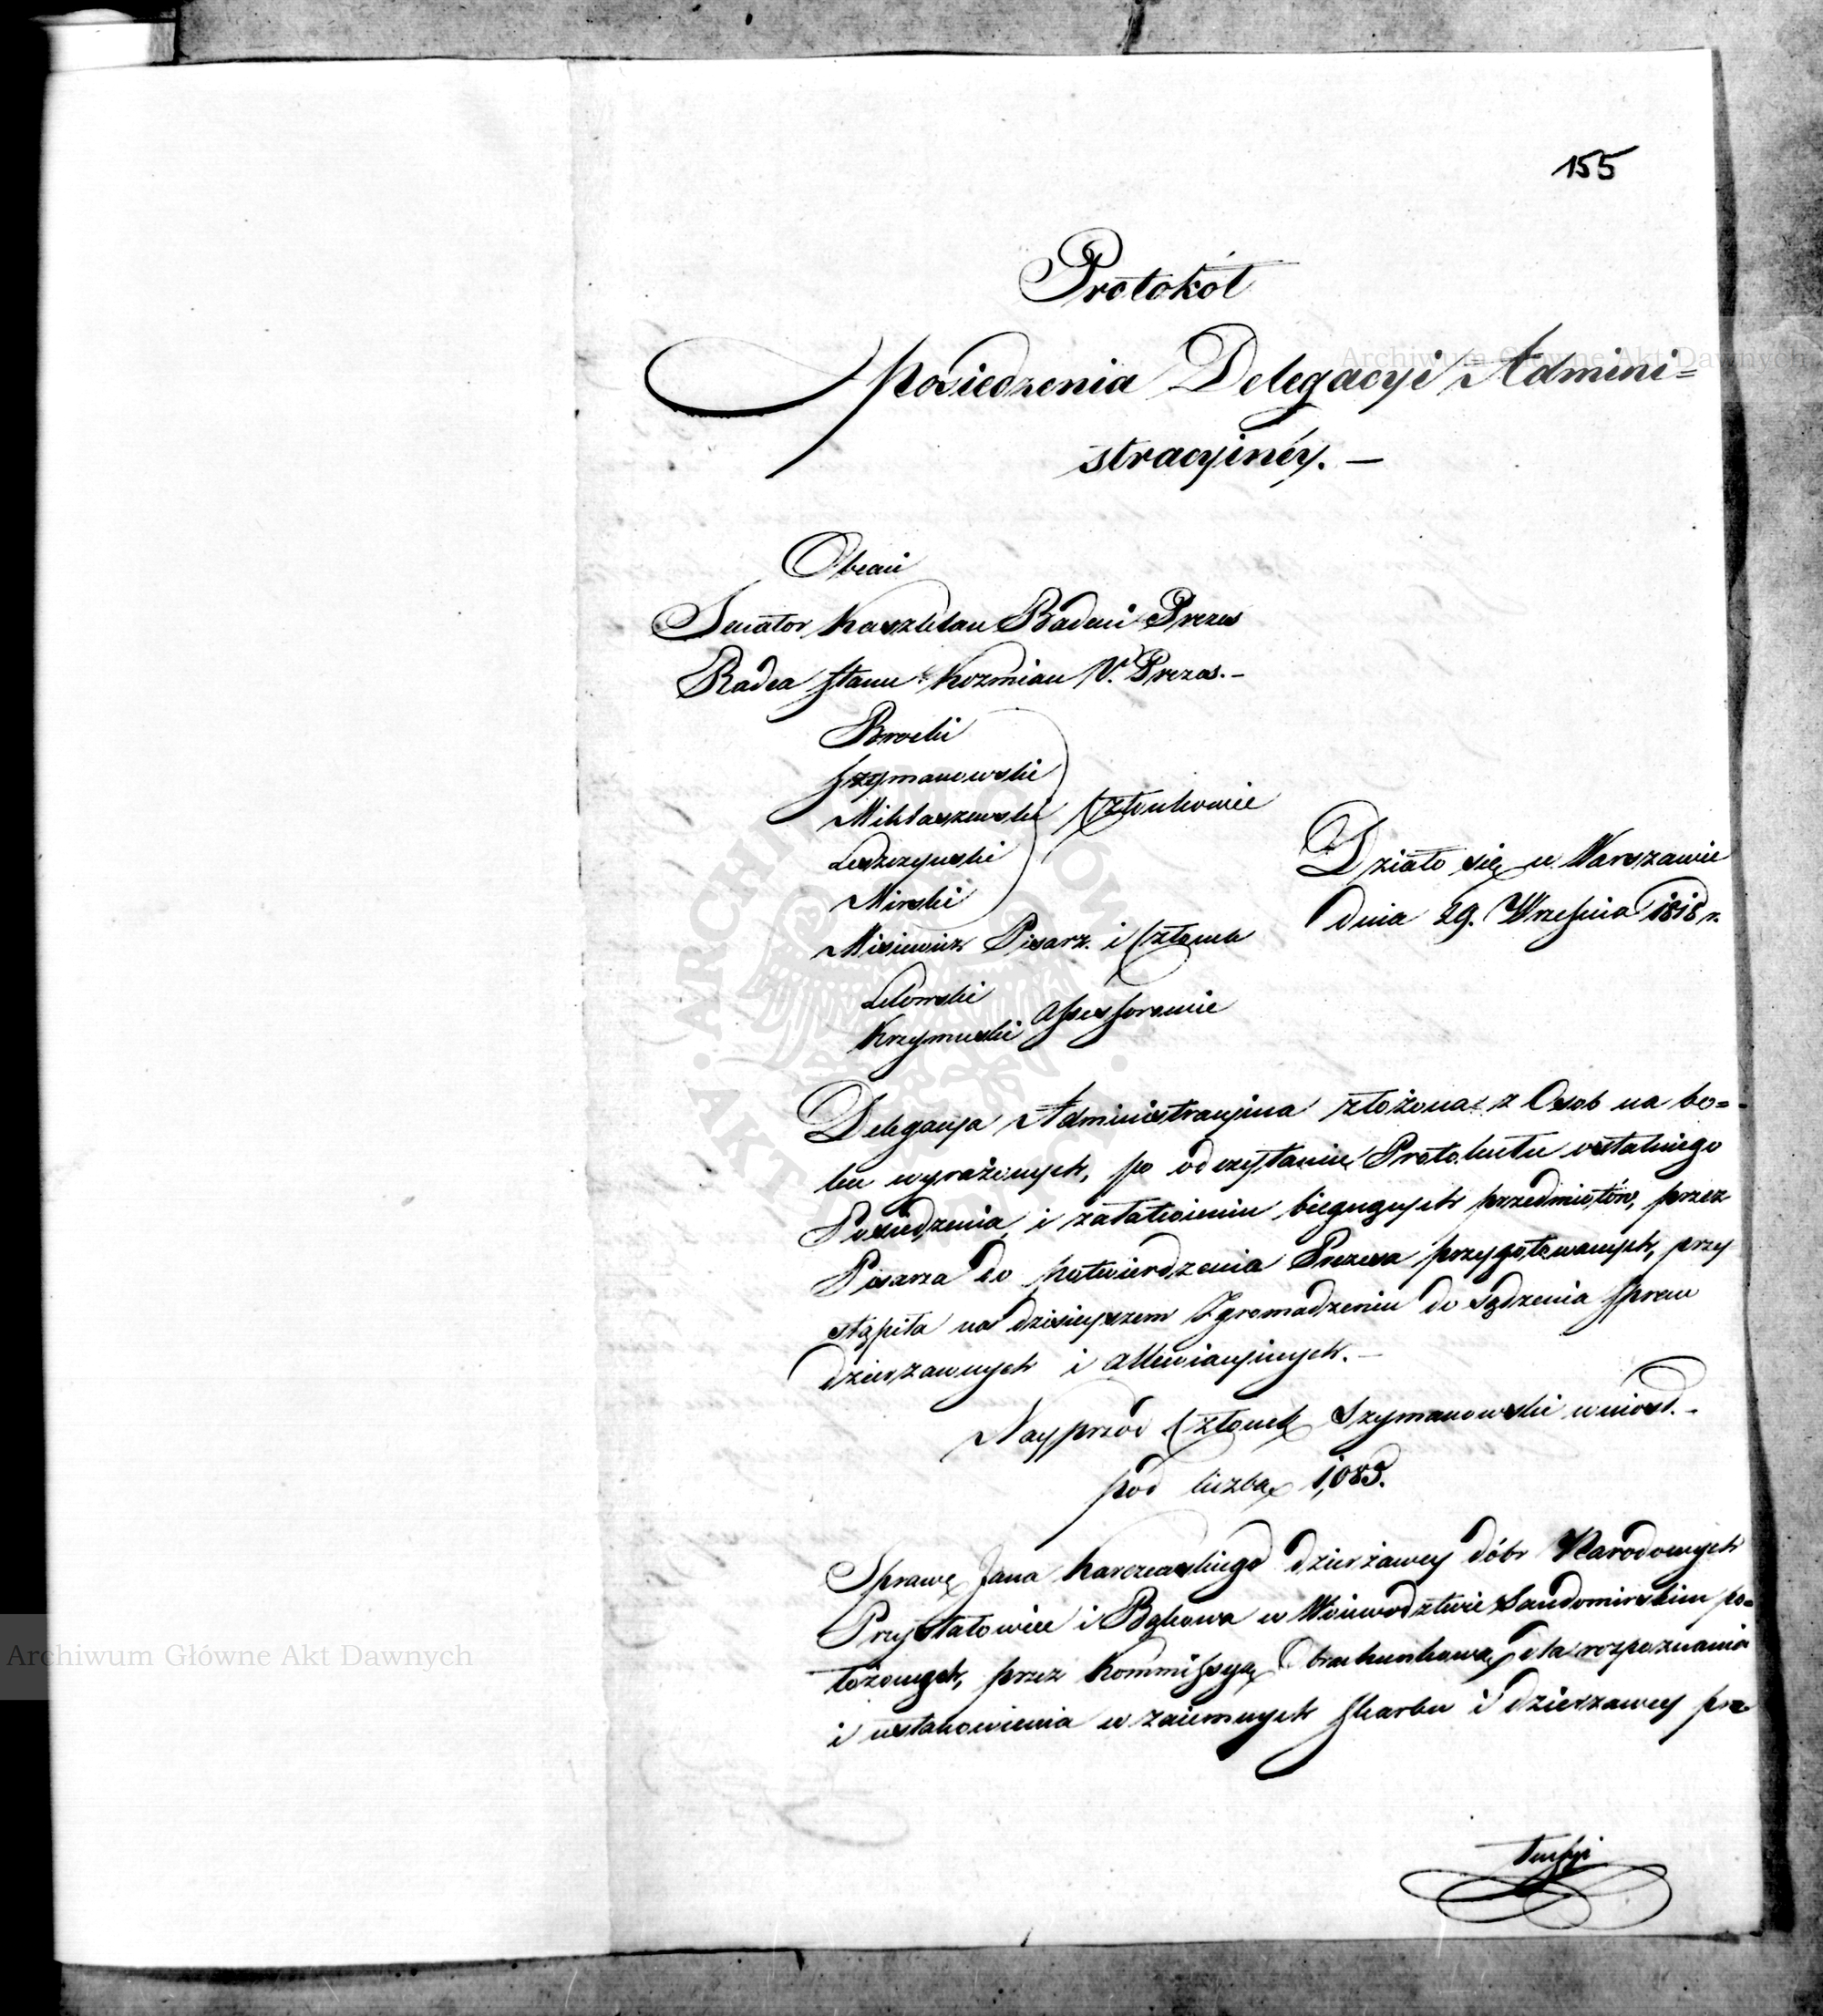 155
Protokół
Posiedzenia Delegacyi Admini=
stracyinéy. —
Obecni
Senator Kasztelan Badeni Prezes
Radca Stanu Kozmian V. Prezes. –
Brocki
Szymanowski
Miklaszewski Członkowie
Leszczynski
Mirski
Misiewicz Pisarz i Członek
Lelowski
Krzymuski Assessorowie
Działo się w Warszawie
dnia 29. Września 1818 r.
Delegacya Administracyina złożona z Osob na bo=
ku wyrażonych, po odczytaniu Protokułu ostatniego
Posiedzenia, i załatwieniu bieguących przedmiotów, przez
Pisarza do potwierdzenia Prezesa przygotowanych, przy
stąpiła na dzisieyszem Zgromadzeniu do sądzenia Spraw
dzierzawnych i allewiacyinych. –
Nayprzód Członek Szymanowski wniosł. –
pod liczbą 1,083.
Sprawę Jana Karczewskiego dzierżawcy dóbr Narodowych
Przystałowice i Bąkowa w Woiewodztwie Sandomirskim po=
łożonych, przez Kommissyą Obrachunkową dla rozpoznania
i ustanowienia wzaiemnych Skarbu i dzierzawcy pre
tensyi
Archiwum Główne Akt Dawnych
Archiwum Główne Akt Dawnych